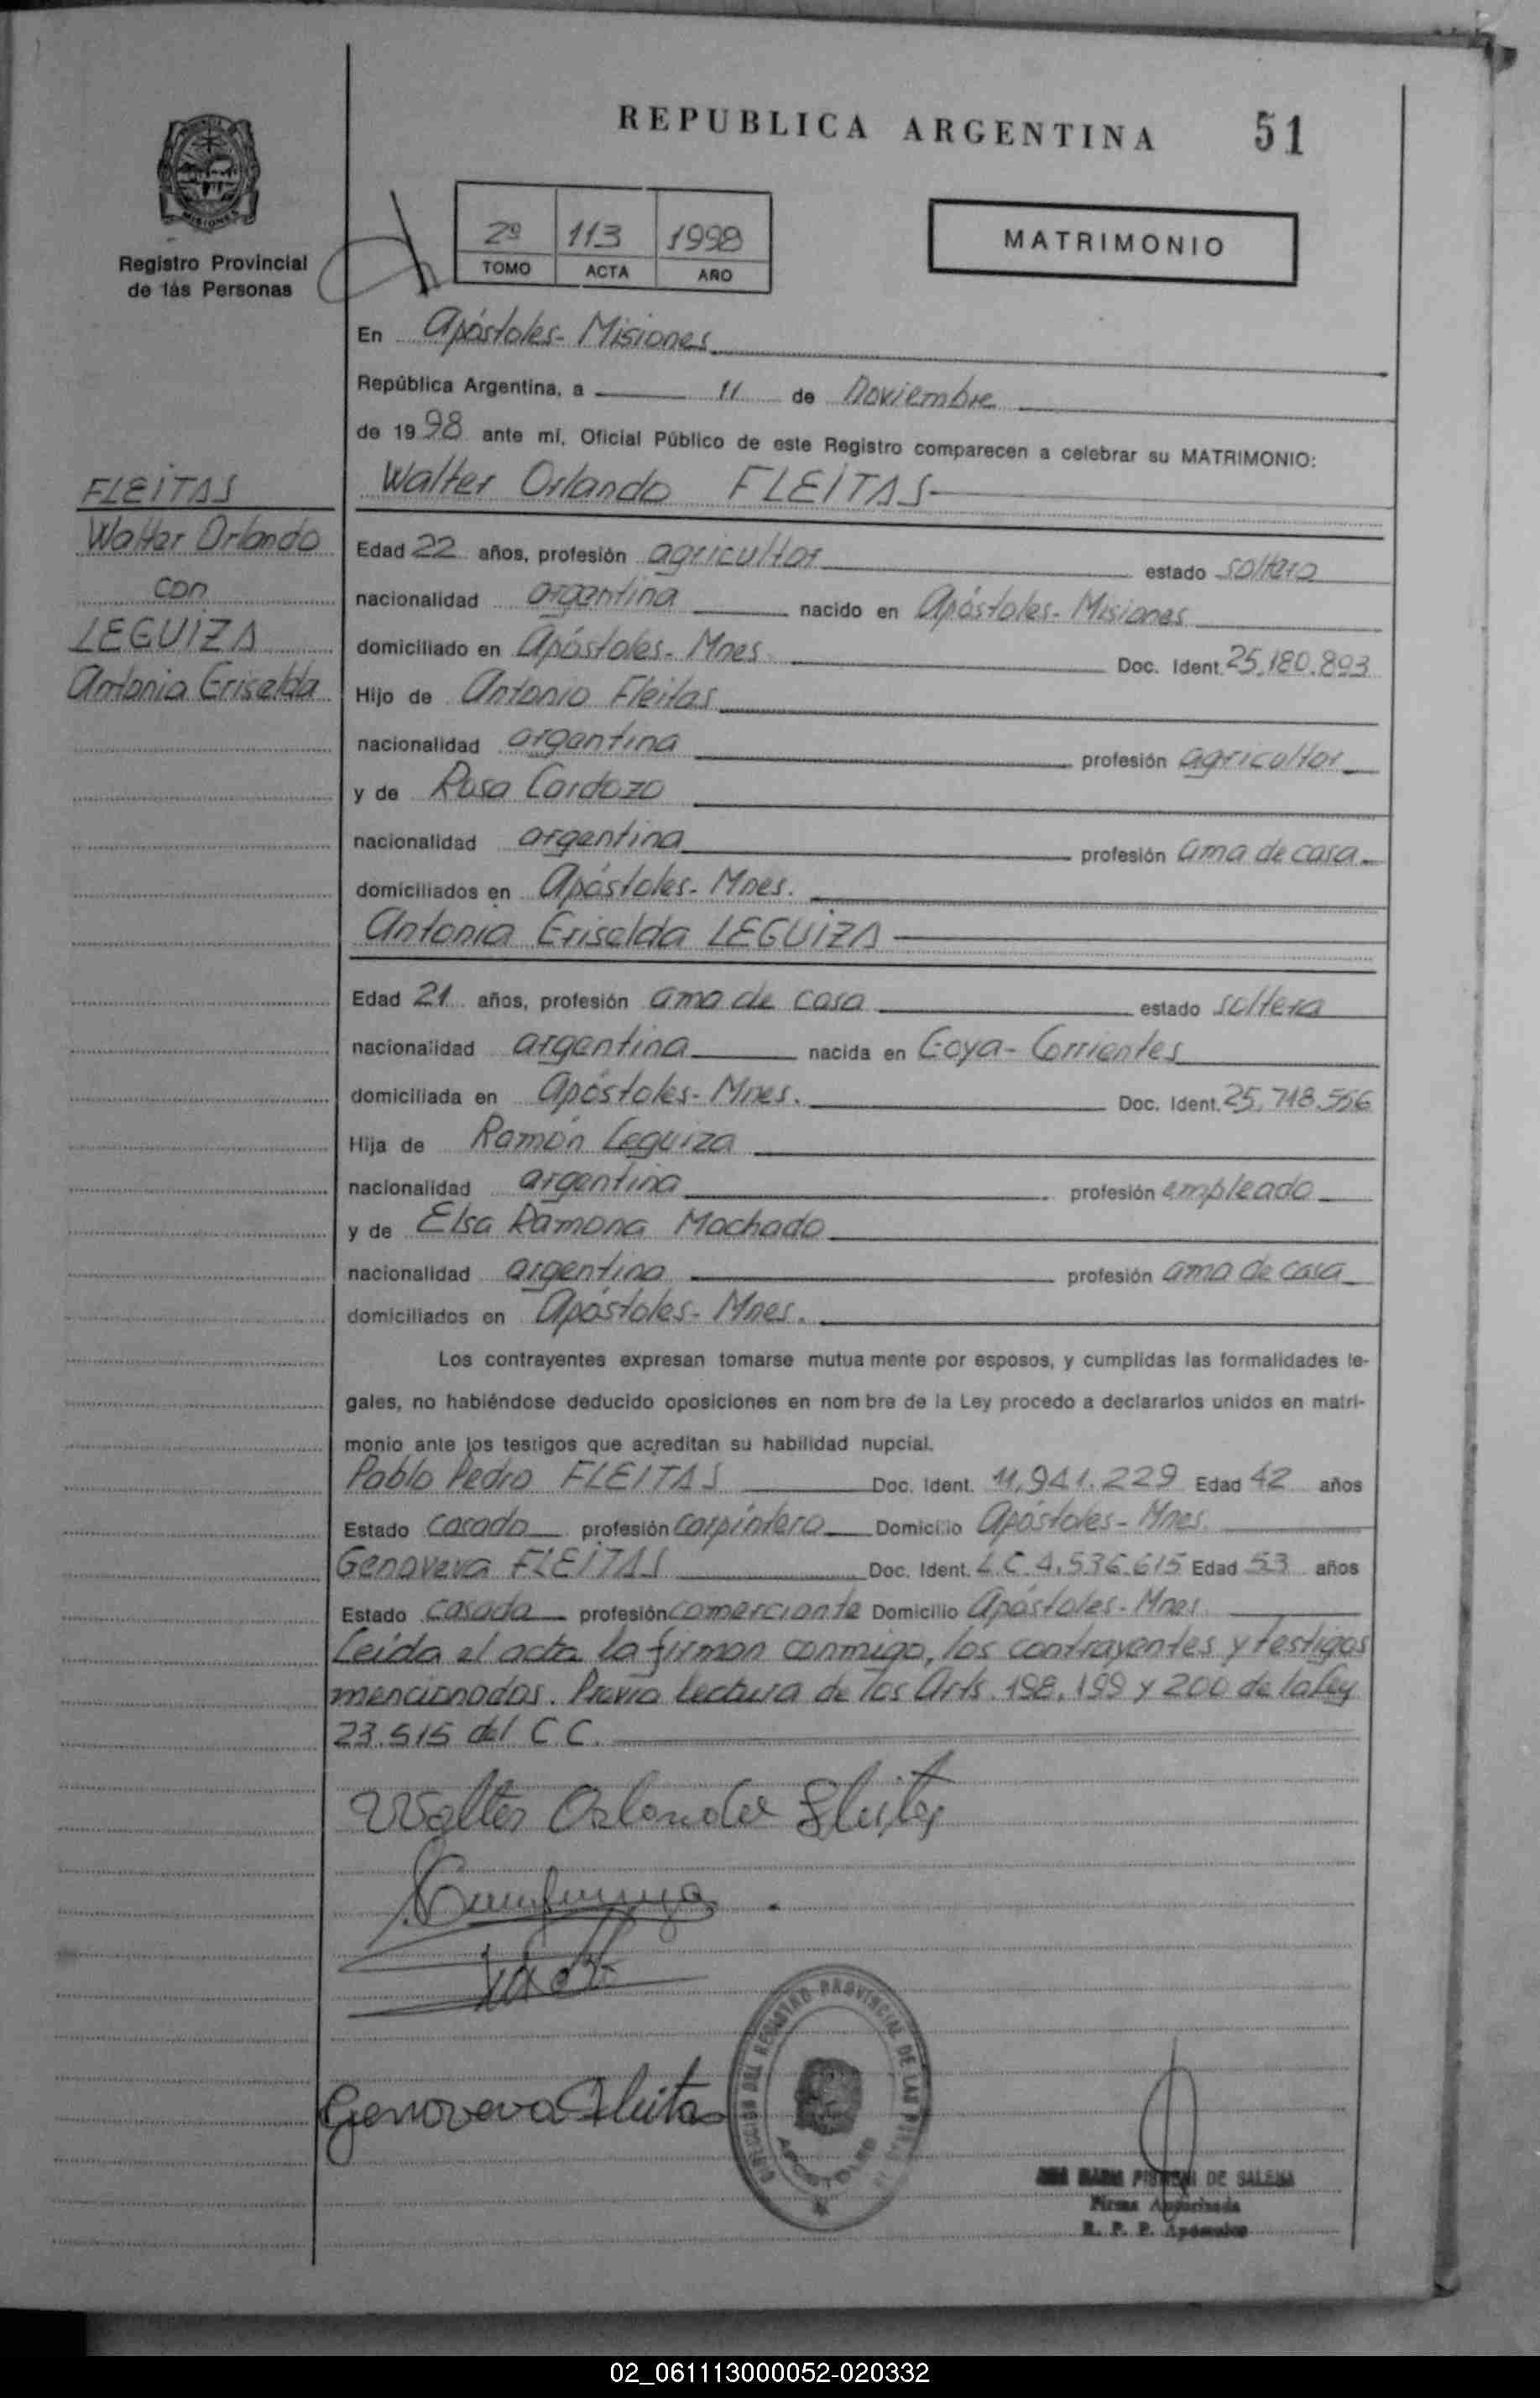 REPUBLICA ARGENTINA 51
MISIONES
Registro Provincial
de las Personas
2º 113 1998
TOMO ACTA AÑO
MATRIMONIO
En Apóstoles- Misiones
República Argentina, a 11 de Noviembre
de 1998 ante mí, Oficial Público de este Registro comparecen a celebrar su MATRIMONIO:
FLEITAS
Walter Orlando
con
LEGUIZA
Antonia Griselda
Walter Orlando FLEITAS
Edad 22 años, profesión agricultor estado soltero
nacionalidad argentina nacido en Apóstoles- Misiones
domiciliado en Apóstoles- Mnes. Doc. Ident. 25.180.893
Hijo de Antonio Fleitas
nacionalidad argentina profesión agricultor
y de Rosa Cardozo
nacionalidad argentina profesión ama de casa
domiciliados en Apóstoles- Mnes.
Antonia Griselda LEGUIZA
Edad 21 años, profesión ama de casa estado soltera
nacionalidad argentina nacida en Goya- Corrientes
domiciliada en Apóstoles- Mnes. Doc. Ident.
Hija de Ramón Leguiza
nacionalidad argentina profesión empleado
y de Elsa Ramona Machado
nacionalidad argentina profesión ama de casa
domiciliados en Apóstoles- Mnes.
Los contrayentes expresan tomarse mutua mente por esposos, y cumplidas las formalidades le-
gales, no habiéndose deducido oposiciones en nom bre de la Ley procedo a declararlos unidos en matri-
monio ante los testigos que acreditan su habilidad nupcial.
Pablo Pedro FLEITAS Doc. Ident. 11.941.229 Edad 42 años
Estado casado profesión carpintero Domicilio Apóstoles- Mnes.
Genoveva FLEITAS Doc. Ident. L.C. 4.536.615 Edad 53 años
Estado casada profesión comerciante Domicilio Apóstoles- Mnes.
Leída el acta la firman conmigo, los contrayentes y testigos
mencionados. Previa lectura de los Arts. 198, 199 y 200 de la Ley
23.515 del C.C.
Walter Orlando Fleitas
Genoveva Fleitas
DEL REGISTRO PROVINCIAL DE LAS
APOSTOLES
DE SALENA
Firma Autorizada
R. P. P. Apóstoles
02_061113000052-020332